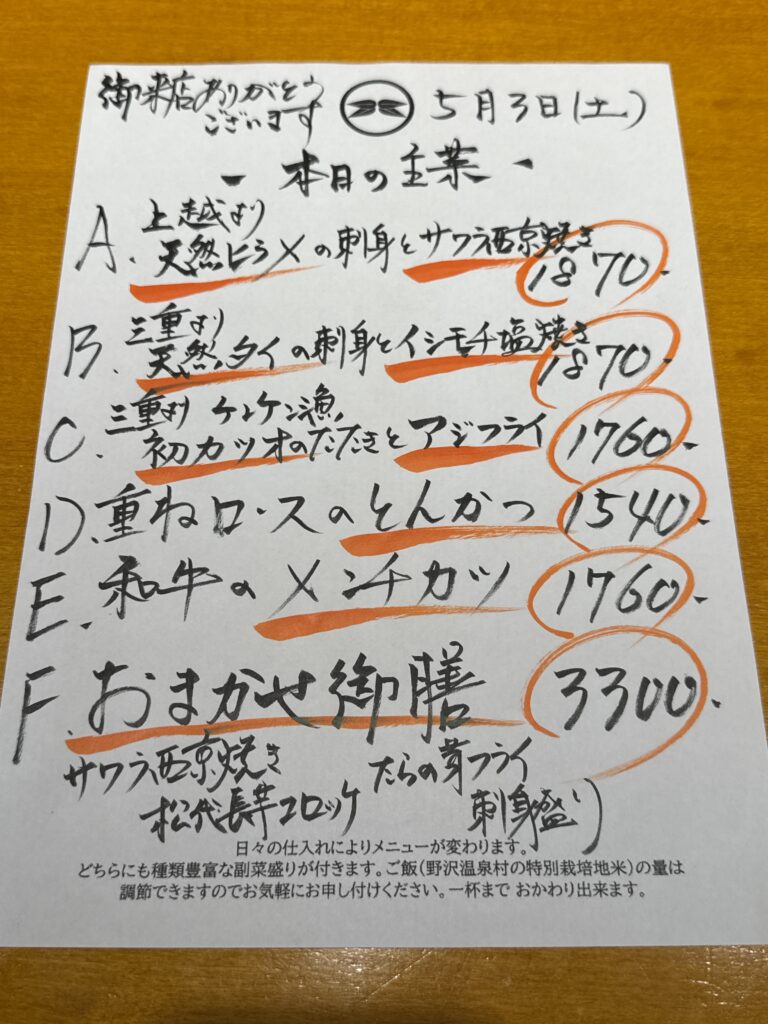 御来店ありがとう
ございます
5月3日(土)
- 本日の主菜 -
A. 上越より
天然ヒラメの刺身とサワラ西京焼き
1870-
B. 三重より
天然タイの刺身とイシモチ塩焼き
1870-
C. 三重より ケンケン漁
初カツオのたたきとアジフライ 1760-
D. 重ねロースのとんかつ 1540-
E. 和牛のメンチカツ 1760-
F. おまかせ御膳 3300-
サワラ西京焼き たらの芽フライ
松代長芋コロッケ 刺身盛り
日々の仕入れによりメニューが変わります。
どちらにも種類豊富な副菜盛りが付きます。ご飯(野沢温泉村の特別栽培地米)の量は
調節できますのでお気軽にお申し付けください。一杯まで おかわり出来ます。